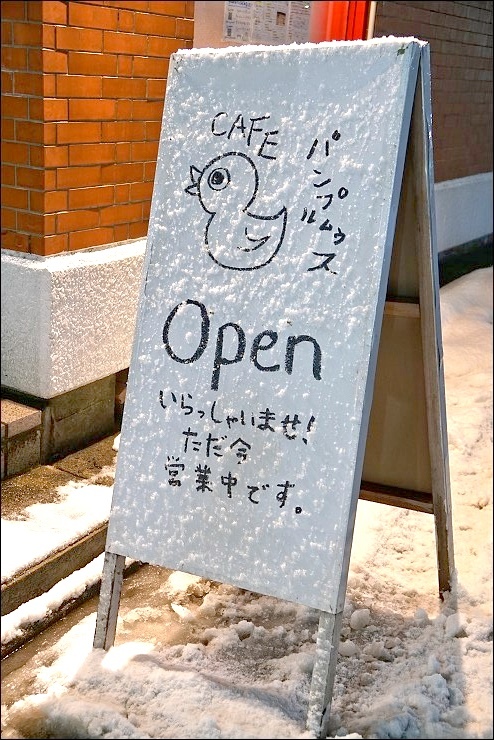 CAFE
パンプルムゥス
Open
いらっしゃいませ!
ただ今
営業中です。